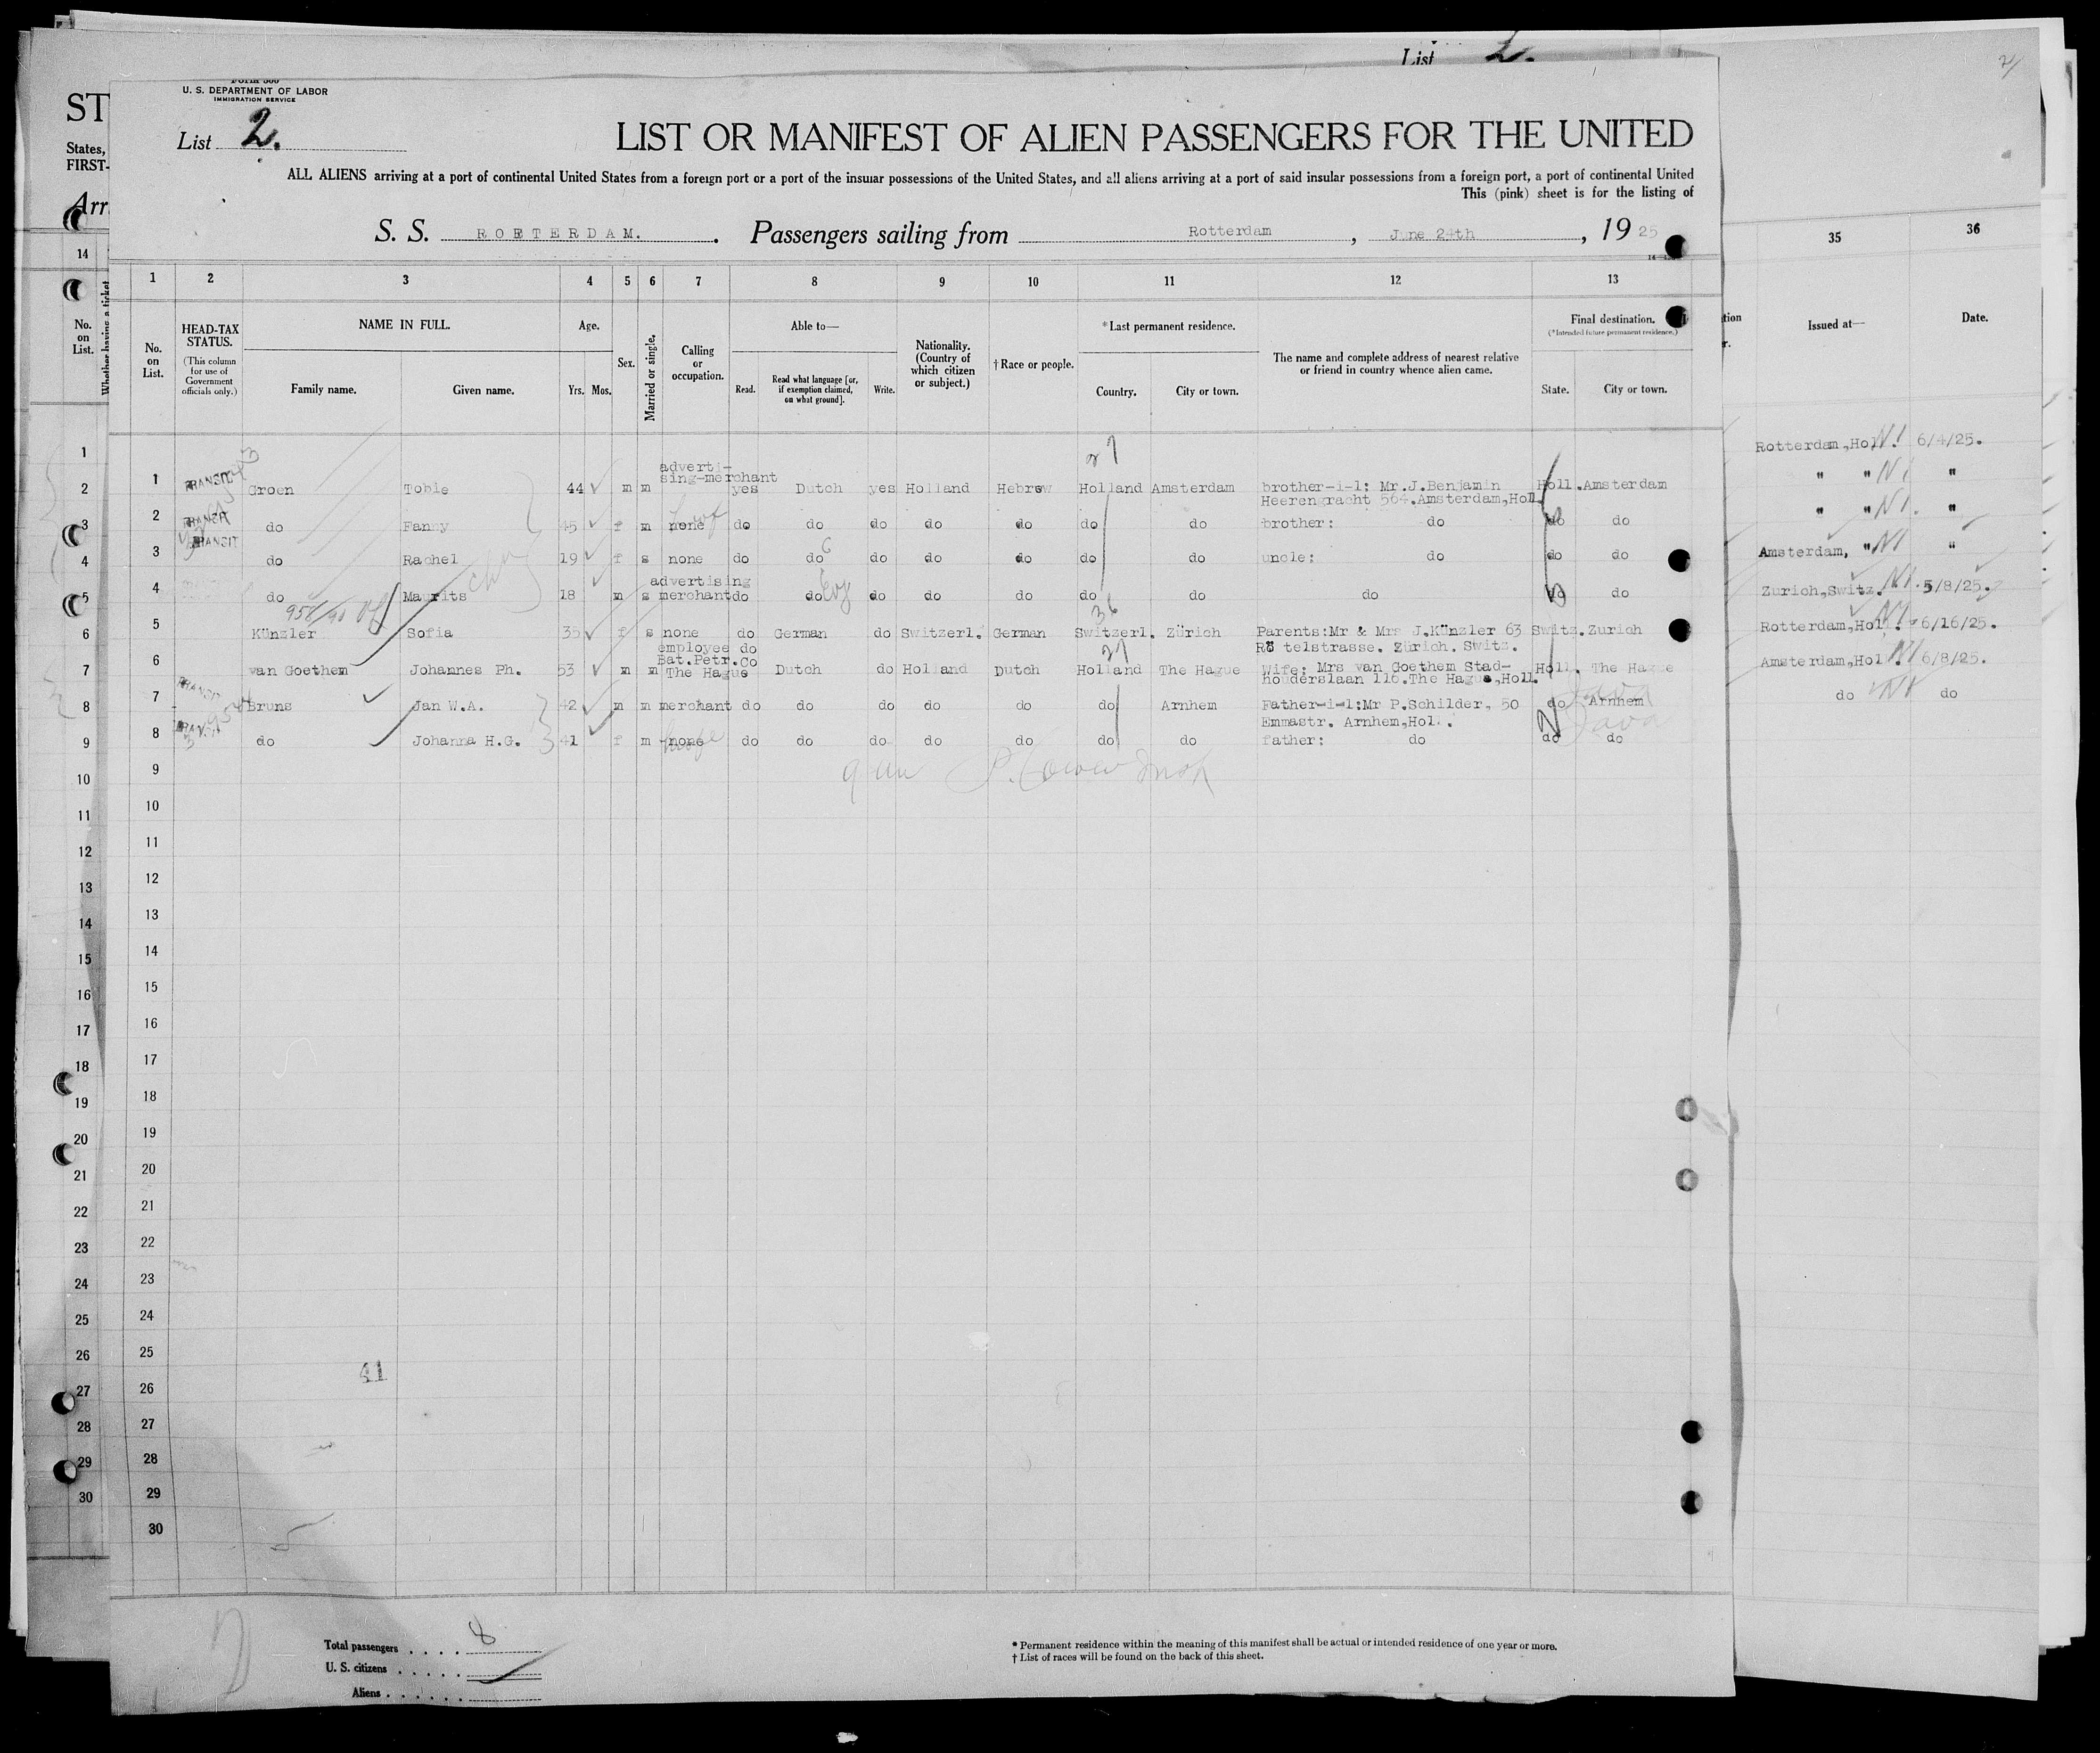 List 2.
Form 500
U. S. DEPARTMENT OF LABOR
IMMIGRATION SERVICE
ST
List 2.
LIST OR MANIFEST OF ALIEN PASSENGERS FOR THE UNITED
States,
FIRST-
ALL ALIENS arriving at a port of continental United States from a foreign port or a port of the insular possessions of the United States, and all aliens arriving at a port of said insular possessions from a foreign port, a port of continental United
This (pink) sheet is for the listing of
Arr
S. S. ROTTERDAM. Passengers sailing from Rotterdam, June 24th, 1925
14 1 2 3 4 5 6 7 8 9 10 11 12 13 35 36
No. on List.
Whether having a ticket
No. on List.
HEAD-TAX STATUS.
(This column for use of Government officials only.)
NAME IN FULL.
Family name. Given name.
Age.
Yrs. Mos.
Sex.
Married or single.
Calling or occupation.
Able to—
Read. Read what language [or, if exemption claimed, on what ground]. Write.
Nationality. (Country of which citizen or subject.)
† Race or people.
*Last permanent residence.
Country. City or town.
The name and complete address of nearest relative or friend in country whence alien came.
Final destination.
(*Intended future permanent residence.)
State. City or town.
tion
r.
Issued at— Date.
27
1 TRANSIT Groen Tobie 44 m m adverti-sing-merchant yes Dutch yes Holland Hebrew Holland Amsterdam brother-i-l: Mr.J.Benjamin Heerengracht 564.Amsterdam,Holl. Holl. Amsterdam
2 TRANSIT do Fanny 45 f m none do do do do do do do brother: do do do
3 TRANSIT do Rachel 19 f s none do do do do do do do uncle: do do do
4 do Maurits 18 m s advertising merchant do do do do do do do do do do
36
5 Künzler Sofia 35 f s none do German do Switzerl. German Switzerl. Zürich Parents:Mr & Mrs J.Künzler 63 Rö telstrasse. Zürich. Switz. Switz. Zurich
27
6 van Goethem Johannes Ph. 53 m m employee Bat.Petr.Co The Hague do Dutch do Holland Dutch Holland The Hague Wife: Mrs van Goethem Stad-houderslaan 116.The Hague,Holl. Holl. The Hague
7 TRANSIT Bruns Jan W.A. 42 m m merchant do do do do do do Arnhem Father-i-l:Mr P.Schilder, 50 Emmastr. Arnhem,Hol. do Arnhem Java
8 TRANSIT do Johanna H.G. 41 f m none do do do do do do do father: do do do Java
Rotterdam,Hol. 6/4/25.
" " "
" " "
Amsterdam, " "
Zurich,Switz. 5/8/25.
Rotterdam,Hol. 6/16/25.
Amsterdam,Hol 6/8/25.
do do
1
2
3
4
5
6
7
8
9
10
11
12
13
14
15
16
17
18
19
20
21
22
23
24
25
26
27
28
29
30
9
10
11
12
13
14
15
16
17
18
19
20
21
22
23
24
25
26
27
28
29
30
41
Total passengers . . . . 8
U. S. citizens . . . . .
Aliens . . . . . .
* Permanent residence within the meaning of this manifest shall be actual or intended residence of one year or more.
† List of races will be found on the back of this sheet.